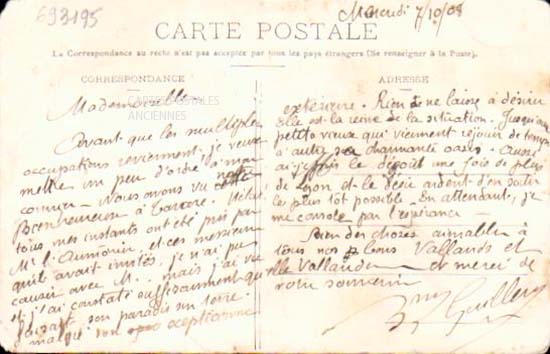 693195
Mercredi 7/10/08
CARTE POSTALE
La Correspondance au recto n'est pas acceptée par tous les pays étrangers (Se renseigner à la Poste).
CORRESPONDANCE
CARTES POSTALES
ANCIENNES
Mademoiselle
Avant que les multiples
occupations reviennent, je veux
mettre un peu d'ordre à mon
courrier - Nous avons vu notre
Bienheureux à Tarare. Hélas
tous mes instants ont été pris par
Mr l'Aumônier, et ces messieurs
qu'il avait invités, je n'ai pas
causer avec M. mais j'ai vu
et j'ai constaté suffisamment que
faisait son paradis sur terre.
malgré son
ADRESSE
extérieure. Rien ne laisse à désirer
elle est la reine de la situation. Jusqu'aux
petits vieux qui viennent réjouir de temps
à autre sa charmante oasis. Aussi
ai-je le dégoût une fois de plus
de Lyon et le désir ardent d'en sortir
le plus tôt possible. En attendant, je
me console par l'espérance -
Bien des choses aimables à
tous nos bons Vallands et
Vallande - et merci de
votre souvenir
Guillery